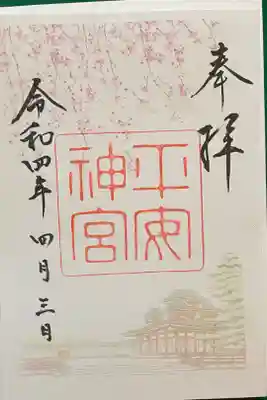 奉拝
平安
神宮
令和四年 四月三日